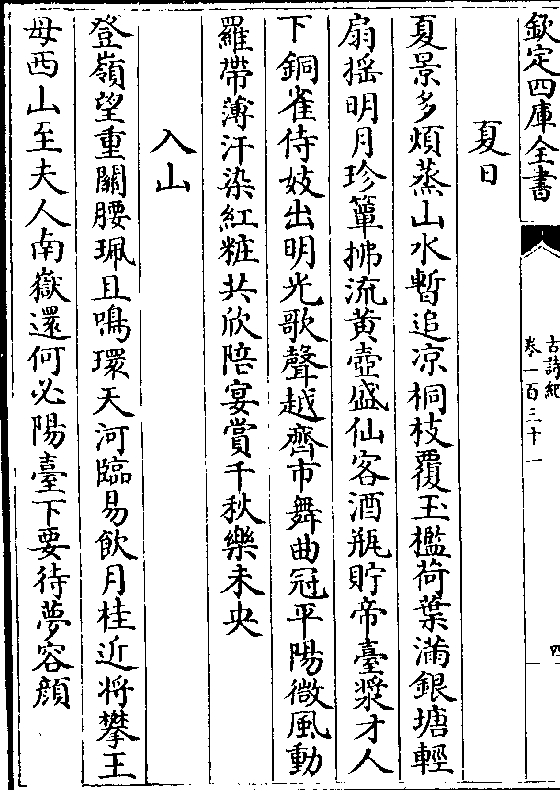 欽定四庫全書
古詩紀
卷一百三十一
四
夏日
夏景多煩蒸山水暫追凉桐枝覆玉檻荷葉滿銀塘輕
扇揺明月珍簟拂流黄壺盛仙客酒瓶貯帝臺漿才人
下銅雀侍妓出明光歌聲越齊市舞曲冠平陽微風動
羅帶薄汗染紅粧共欣陪宴賞千秋樂未央
入山
登嶺望重關腰珮且鳴環天河臨易飲月桂近將攀王
母西山至夫人南嶽還何必陽臺下要待夢容顔